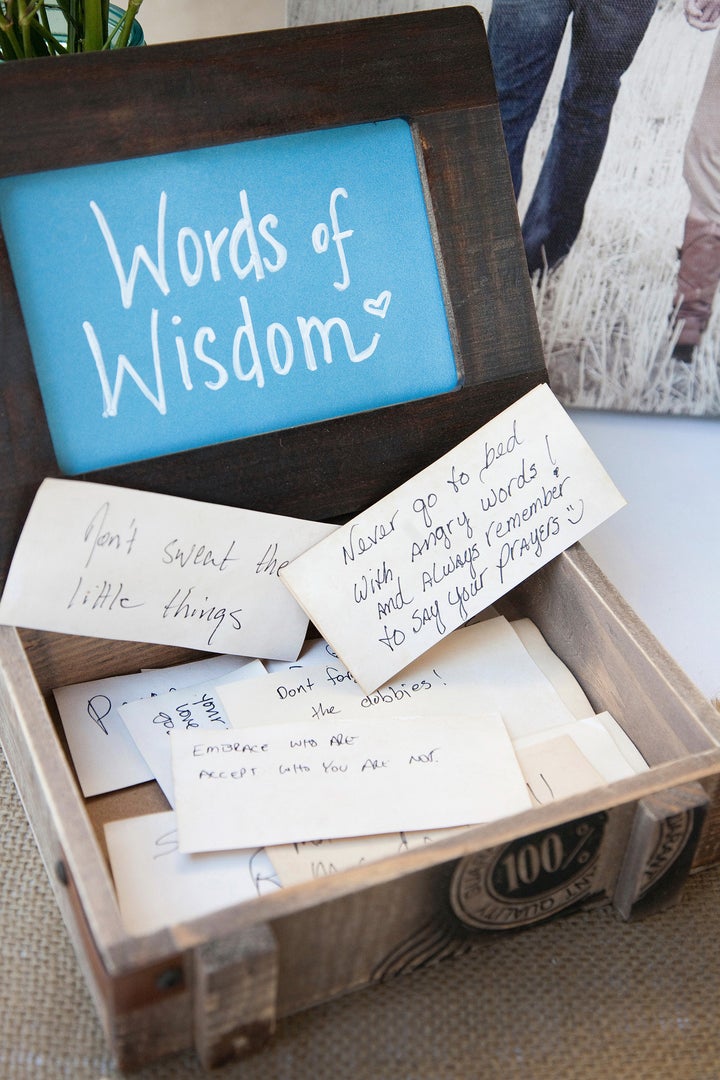 Words of
Wisdom
Don't sweat the
little things
Never go to bed
with angry words!
and always remember
to say your prayers
your
love
Dont for
the dobbies!
EMBRACE WHO ARE
ACCEPT WHO YOU ARE NOT.
100%